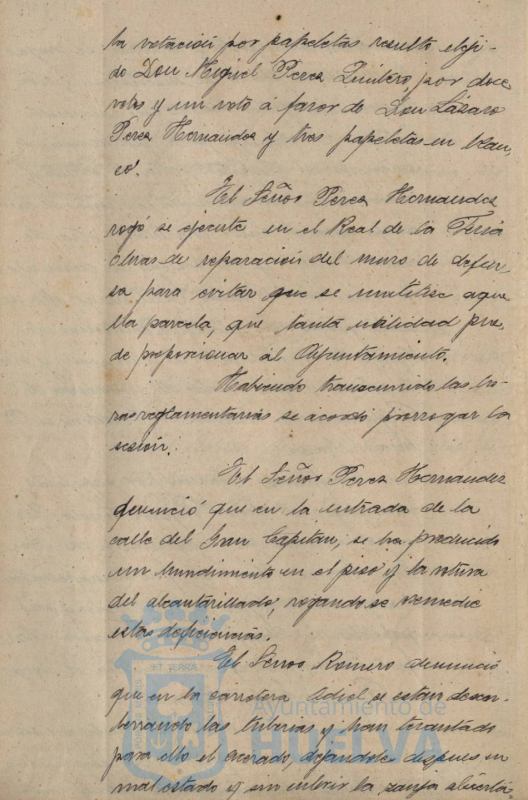 la votación por papeletas resultó elegi-
do Don Miguel Perez Quintero, por doce
votos y un voto á favor de Don Lázaro
Perez Hernandez y tres papeletas en blan-
co.
El Señor Perez Hernandez
rogó se ejecute en el Real de la Feria
obras de reparación del muro de defen-
sa para evitar que se inutilise aque
lla parcela, que tanta utilidad pue-
de proporcionar al Ayuntamiento.
Habiendo transcurrido las ho-
ras reglamentarias se acordó prorrogar la
sesión.
El Señor Perez Hernandez
denunció que en la entrada de la
calle del Gran Capitan, se ha producido
un hundimiento en el piso y la rotura
del alcantarillado, rogando se remedie
estas deficiencias.
El Señor Romero denunció
que en la carretera Odiel se estan desen-
terrando las tuberias y han levantado
para ello el acerado, dejandole despues en
mal estado y sin cubrir la zanja abierta.
ET TERRÆ
Ayuntamiento de
HUELVA